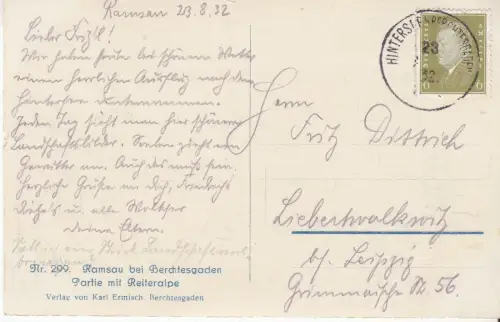 Ramsau 23.8.32
Lieber Fritzl!
Wir haben heute bei schönem Wetter
einen herrlichen Ausflug nach dem
Hintersee unternommen.
Jeden Tag sieht man hier schönere
Landschaftsbilder. Soeben zieht ein
Gewitter an. Auch das muß sein.
Herzliche Grüße an Dich,
u. alle
deine Eltern.
Nr. 299. Ramsau bei Berchtesgaden
Partie mit Reiteralpe
Verlag von Karl Ermisch, Berchtesgaden
HINTERSEE
BERCHTESGADEN
23
32
6
6
Herrn
Fritz Dittrich
Liebertwolkwitz
bf. Leipzig
Grimmaische Str. 56.